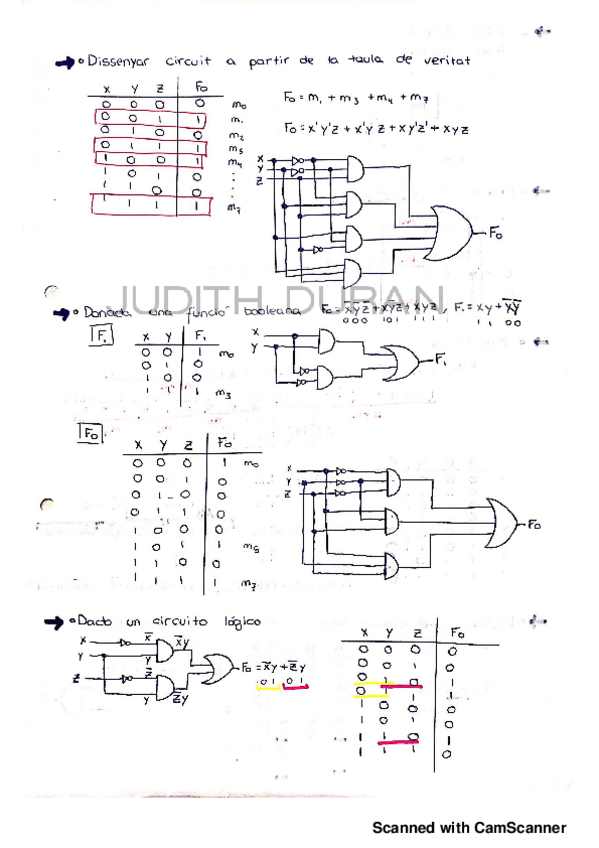 • Dissenyar circuit a partir de la taula de veritat
X Y Z F₀
0 0 0 0 m₀
0 0 1 1 m₁
0 1 0 0 m₂
0 1 1 1 m₃
1 0 0 1 m₄
1 0 1 0
1 1 0 0
1 1 1 1 m₇
F₀ = m₁ + m₃ + m₄ + m₇
F₀ = x'y'z + x'yz + xy'z' + xyz
X
Y
Z
F₀
JUDITH DURAN
• Donada una funció booleana F₀ = X̅Y̅Z̅ + XY̅Z + XYZ, F₁ = XY + X̅Y̅
000 101 111 11 00
F₁
X Y F₁
0 0 1 m₀
0 1 0
1 0 0
1 1 1 m₃
X
Y
F₁
F₀
X Y Z F₀
0 0 0 1 m₀
0 0 1 0
0 1 0 0
0 1 1 0
1 0 0 0
1 0 1 1 m₅
1 1 0 0
1 1 1 1 m₇
X
Y
Z
F₀
• Dado un circuito lógico
X X̅ X̅Y
Y Y
Z Z̅
Y Z̅Y
F₀ = X̅Y + Z̅Y
01 01
X Y Z F₀
0 0 0 0
0 0 1 0
0 1 0 1
0 1 1 1
1 0 0 0
1 0 1 0
1 1 0 1
1 1 1 0
Scanned with CamScanner